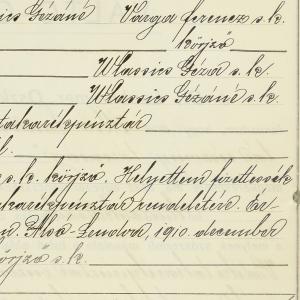 ics Gézáné Varga Ferencz s. k.
körjző
Wlassics Géza s. k.
Wlassics Gézáné s. k.
takarékpénztár
k.
s. k. körjző. Helyettem fizettessék
karékpénztár rendeletére. Ér-
n. Alsó-Lendva, 1910. december
örjző s. k.